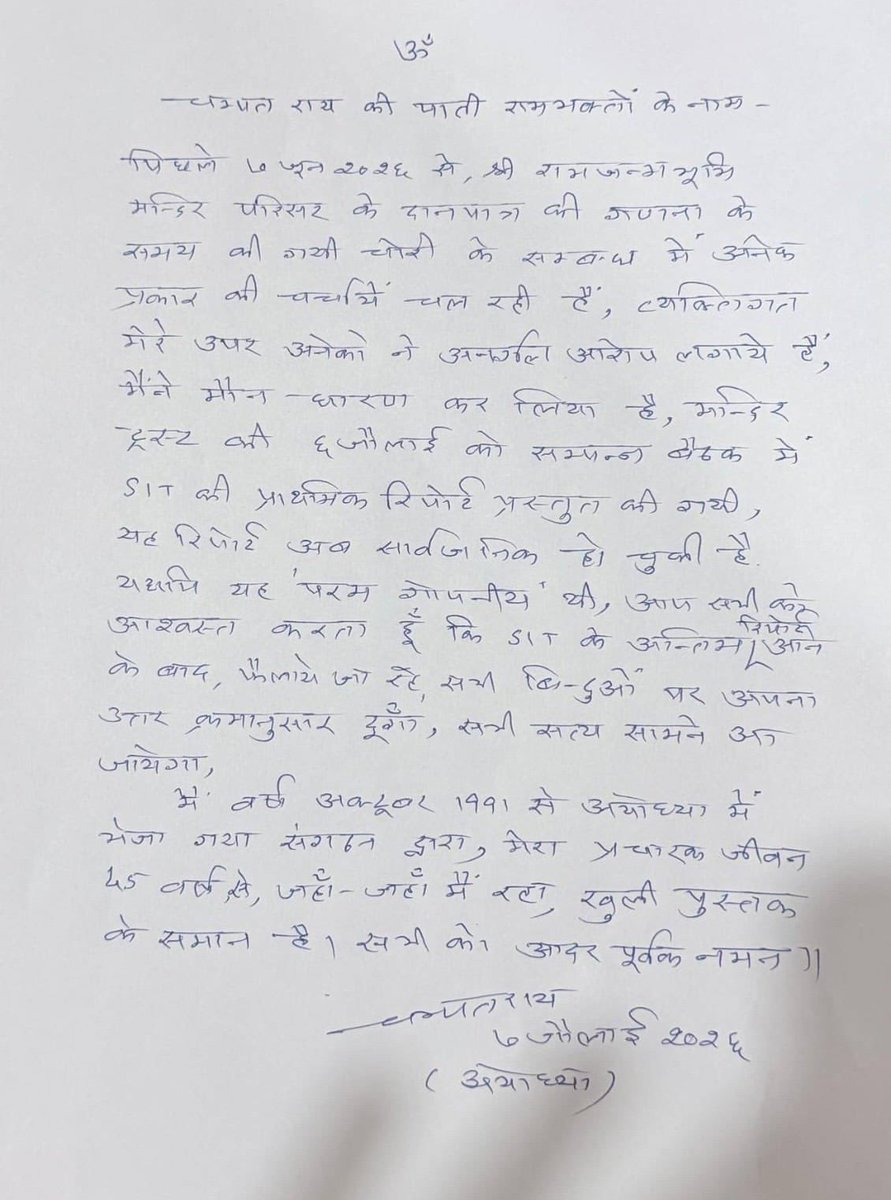 ॐ
चम्पत राय की पाती रामभक्तों के नाम -
पिछले ७ जून २०२६ से, श्री रामजन्मभूमि
मन्दिर परिसर के दानपात्र की गणना के
समय की गयी चोरी के सम्बन्ध में अनेक
प्रकार की चर्चायें चल रही हैं, व्यक्तिगत
मेरे उपर अनेको ने अनर्गल आरोप लगाये हैं,
मैंने मौन धारण कर लिया है, मन्दिर
ट्रस्ट की ६ जौलाई को सम्पन्न बैठक में
SIT की प्राथमिक रिपोर्ट प्रस्तुत की गयी,
यह रिपोर्ट अब सार्वजनिक हो चुकी है.
यद्यपि यह 'परम गोपनीय' थी, आप सभी को
आश्वस्त करता हूँ कि SIT के अन्तिम रिपोर्ट आने
के बाद, फैलाये जा रहे, सभी बिन्दुओं पर अपना
उत्तर क्रमानुसार दूगाँ, सभी सत्य सामने आ
जायेगा,
मैं वर्ष अक्टूबर 1991 से अयोध्या में
भेजा गया संगठन द्वारा, मेरा प्रचारक जीवन
45 वर्ष से, जहाँ-जहाँ मैं रहा, खुली पुस्तक
के समान है। सभी को आदर पूर्वक नमन॥
चम्पतराय
७ जौलाई २०२६
(अयोध्या)